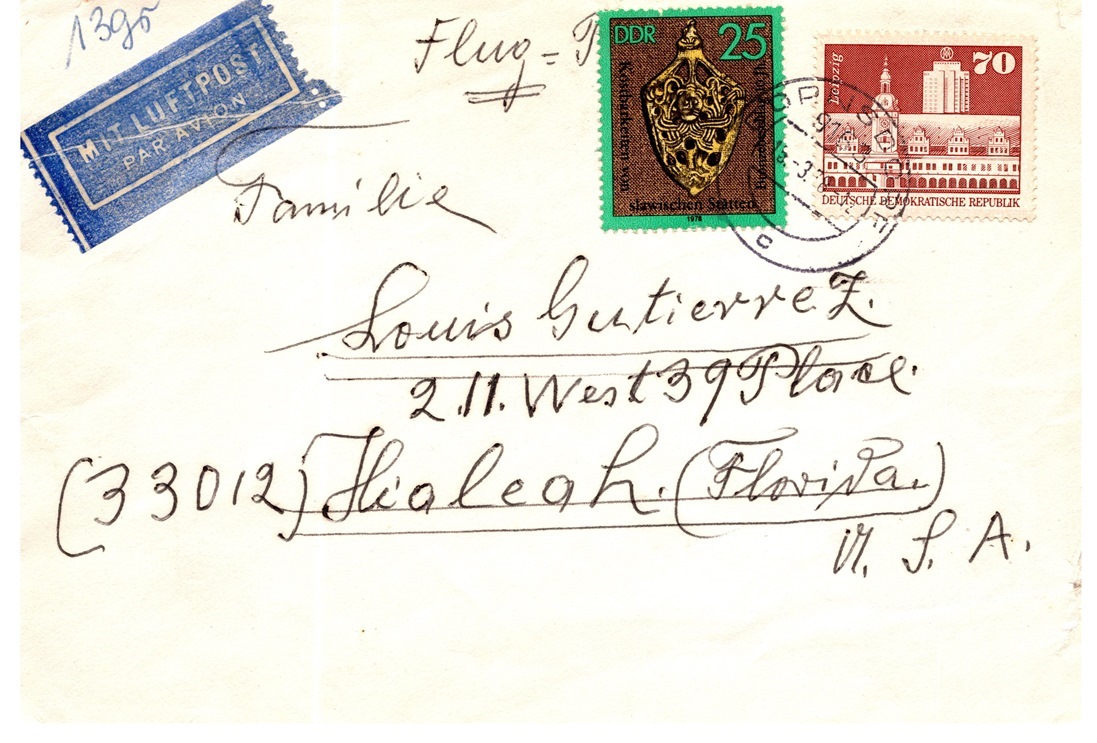 1395
MIT LUFTPOST
PAR AVION
Flug=P
DDR 25
Kostbarkeiten von
slawischen Stätten
1978
Leipzig 70
DEUTSCHE DEMOKRATISCHE REPUBLIK
c
Familie
Louis Gutierrez.
2.11. West 39 Place.
(33012) Hialeah. (Florida.)
U. S. A.